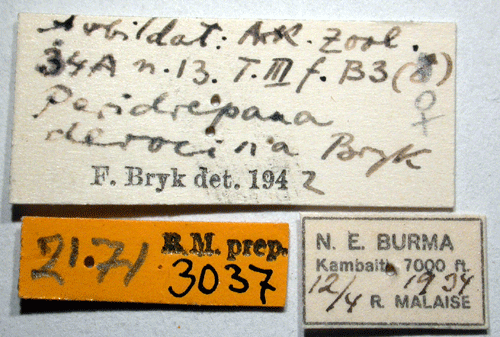 Avbildat: Ark. Zool.
34A n. 13. T. III f. B3 (8)
Peridrepana ♀
derocina Bryk
F. Bryk det. 1942
21.71 R.M. prep.
3037
N. E. BURMA
Kambaiti 7000 ft.
12/4 1934
R. MALAISE